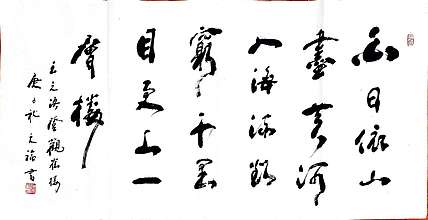 白日依山
盡黃河
入海流欲
窮千里
目更上一
層樓
王之渙登觀雀樓
庚子書